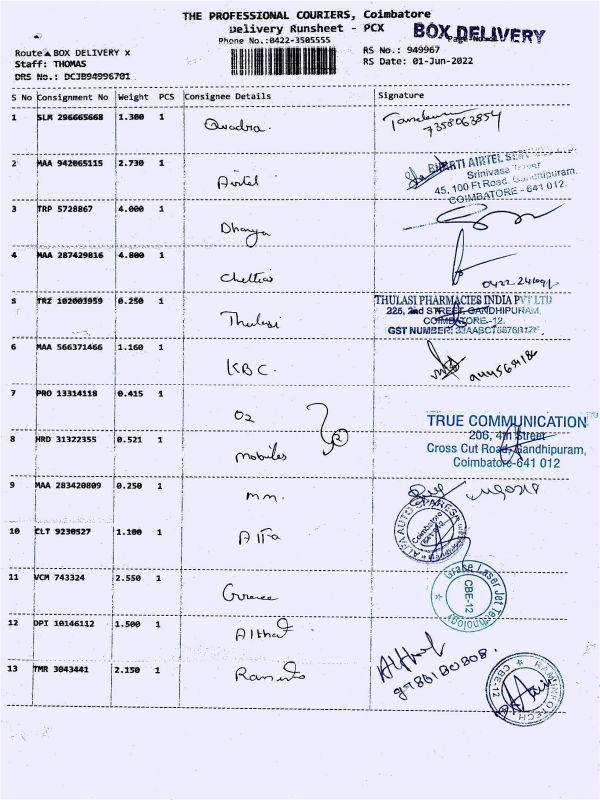 THE PROFESSIONAL COURIERS, Coimbatore
Delivery Runsheet - PCX
BOX DELIVERY
Phone No.:0422-3505555
Route BOX DELIVERY x
RS No.: 949967
Staff: THOMAS
RS Date: 01-Jun-2022
DRS No.: DCJB94996701
S No Consignment No Weight PCS Consignee Details Signature
1 SLM 296665668 1.300 1 Quadra.
7358063854
2 MAA 942065115 2.730 1 Airtel
BHARTI AIRTEL
Srinivasa Tower
45, 100 Ft Road, Gandhipuram,
COIMBATORE - 641 012
3 TRP 5728867 4.000 1 Dhanya
4 MAA 287429816 4.800 1 Chettias
5 TRZ 102003959 0.250 1 Thulasi
THULASI PHARMACIES INDIA PVT LTD
226, 2nd STREET, GANDHIPURAM,
COIMBATORE-12.
GST NUMBER:
6 MAA 566371466 1.160 1 KBC.
7 PRO 13314118 0.415 1 O2
8 HRD 31322355 0.521 1 mobiles
2
TRUE COMMUNICATION
206, 4th Street
Cross Cut Road, Gandhipuram,
Coimbatore-641 012
9 MAA 283420809 0.250 1 m.m.
10 CLT 9230527 1.100 1
Coimbatore
11 VCM 743324 2.550 1
Grase Laser Jet Technology
CBE-12
12 DPI 10146112 1.500 1 Althaf
Althaf
9786180808.
13 TMR 3043441 2.150 1
RAMINFOTECH
CBE-12